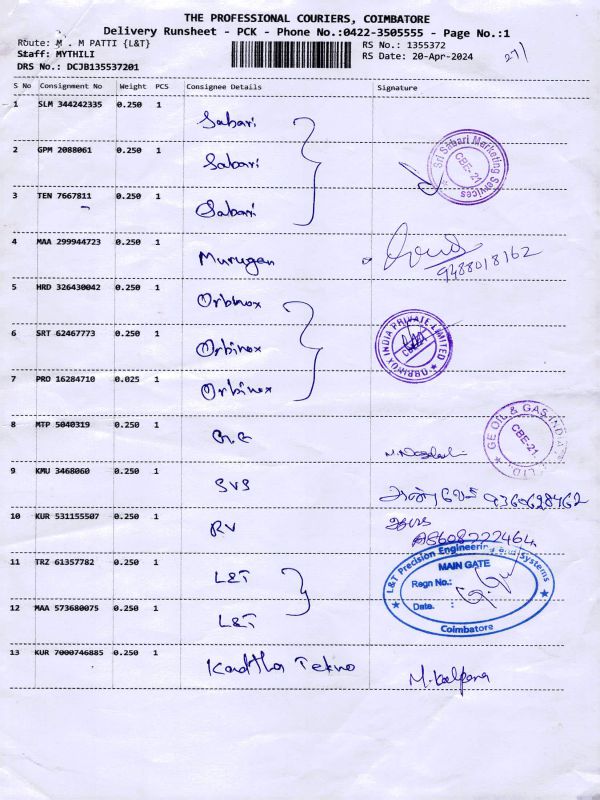 THE PROFESSIONAL COURIERS, COIMBATORE
Delivery Runsheet - PCK - Phone No.:0422-3505555 - Page No.:1
Route: M . M PATTI {L&T}
Staff: MYTHILI
DRS No.: DCJB135537201
RS No.: 1355372
RS Date: 20-Apr-2024
27/
S No Consignment No Weight PCS Consignee Details Signature
1 SLM 344242335 0.250 1 Sabari
2 GPM 2088061 0.250 1 Sabari
Sri Sabari Marketing Services CBE-21
3 TEN 7667811 0.250 1 Sabari
4 MAA 299944723 0.250 1 Murugan
9488018162
5 HRD 326430042 0.250 1 Orbinox
6 SRT 62467773 0.250 1 Orbinox
ORBINOX INDIA PRIVATE LIMITED
7 PRO 16284710 0.025 1 Orbinox
8 MTP 5040319 0.250 1
GE OIL & GAS INDIA LTD. CBE-21.
9 KMU 3468060 0.250 1 SVS
9360628462
10 KUR 531155507 0.250 1 RV
11 TRZ 61357782 0.250 1 L&T
L&T Precision Engineering and Systems
MAIN GATE
Regn No.:
Date. :
Coimbatore
12 MAA 573680075 0.250 1 L&T
13 KUR 7000746885 0.250 1 Tekno
M. Kalpana